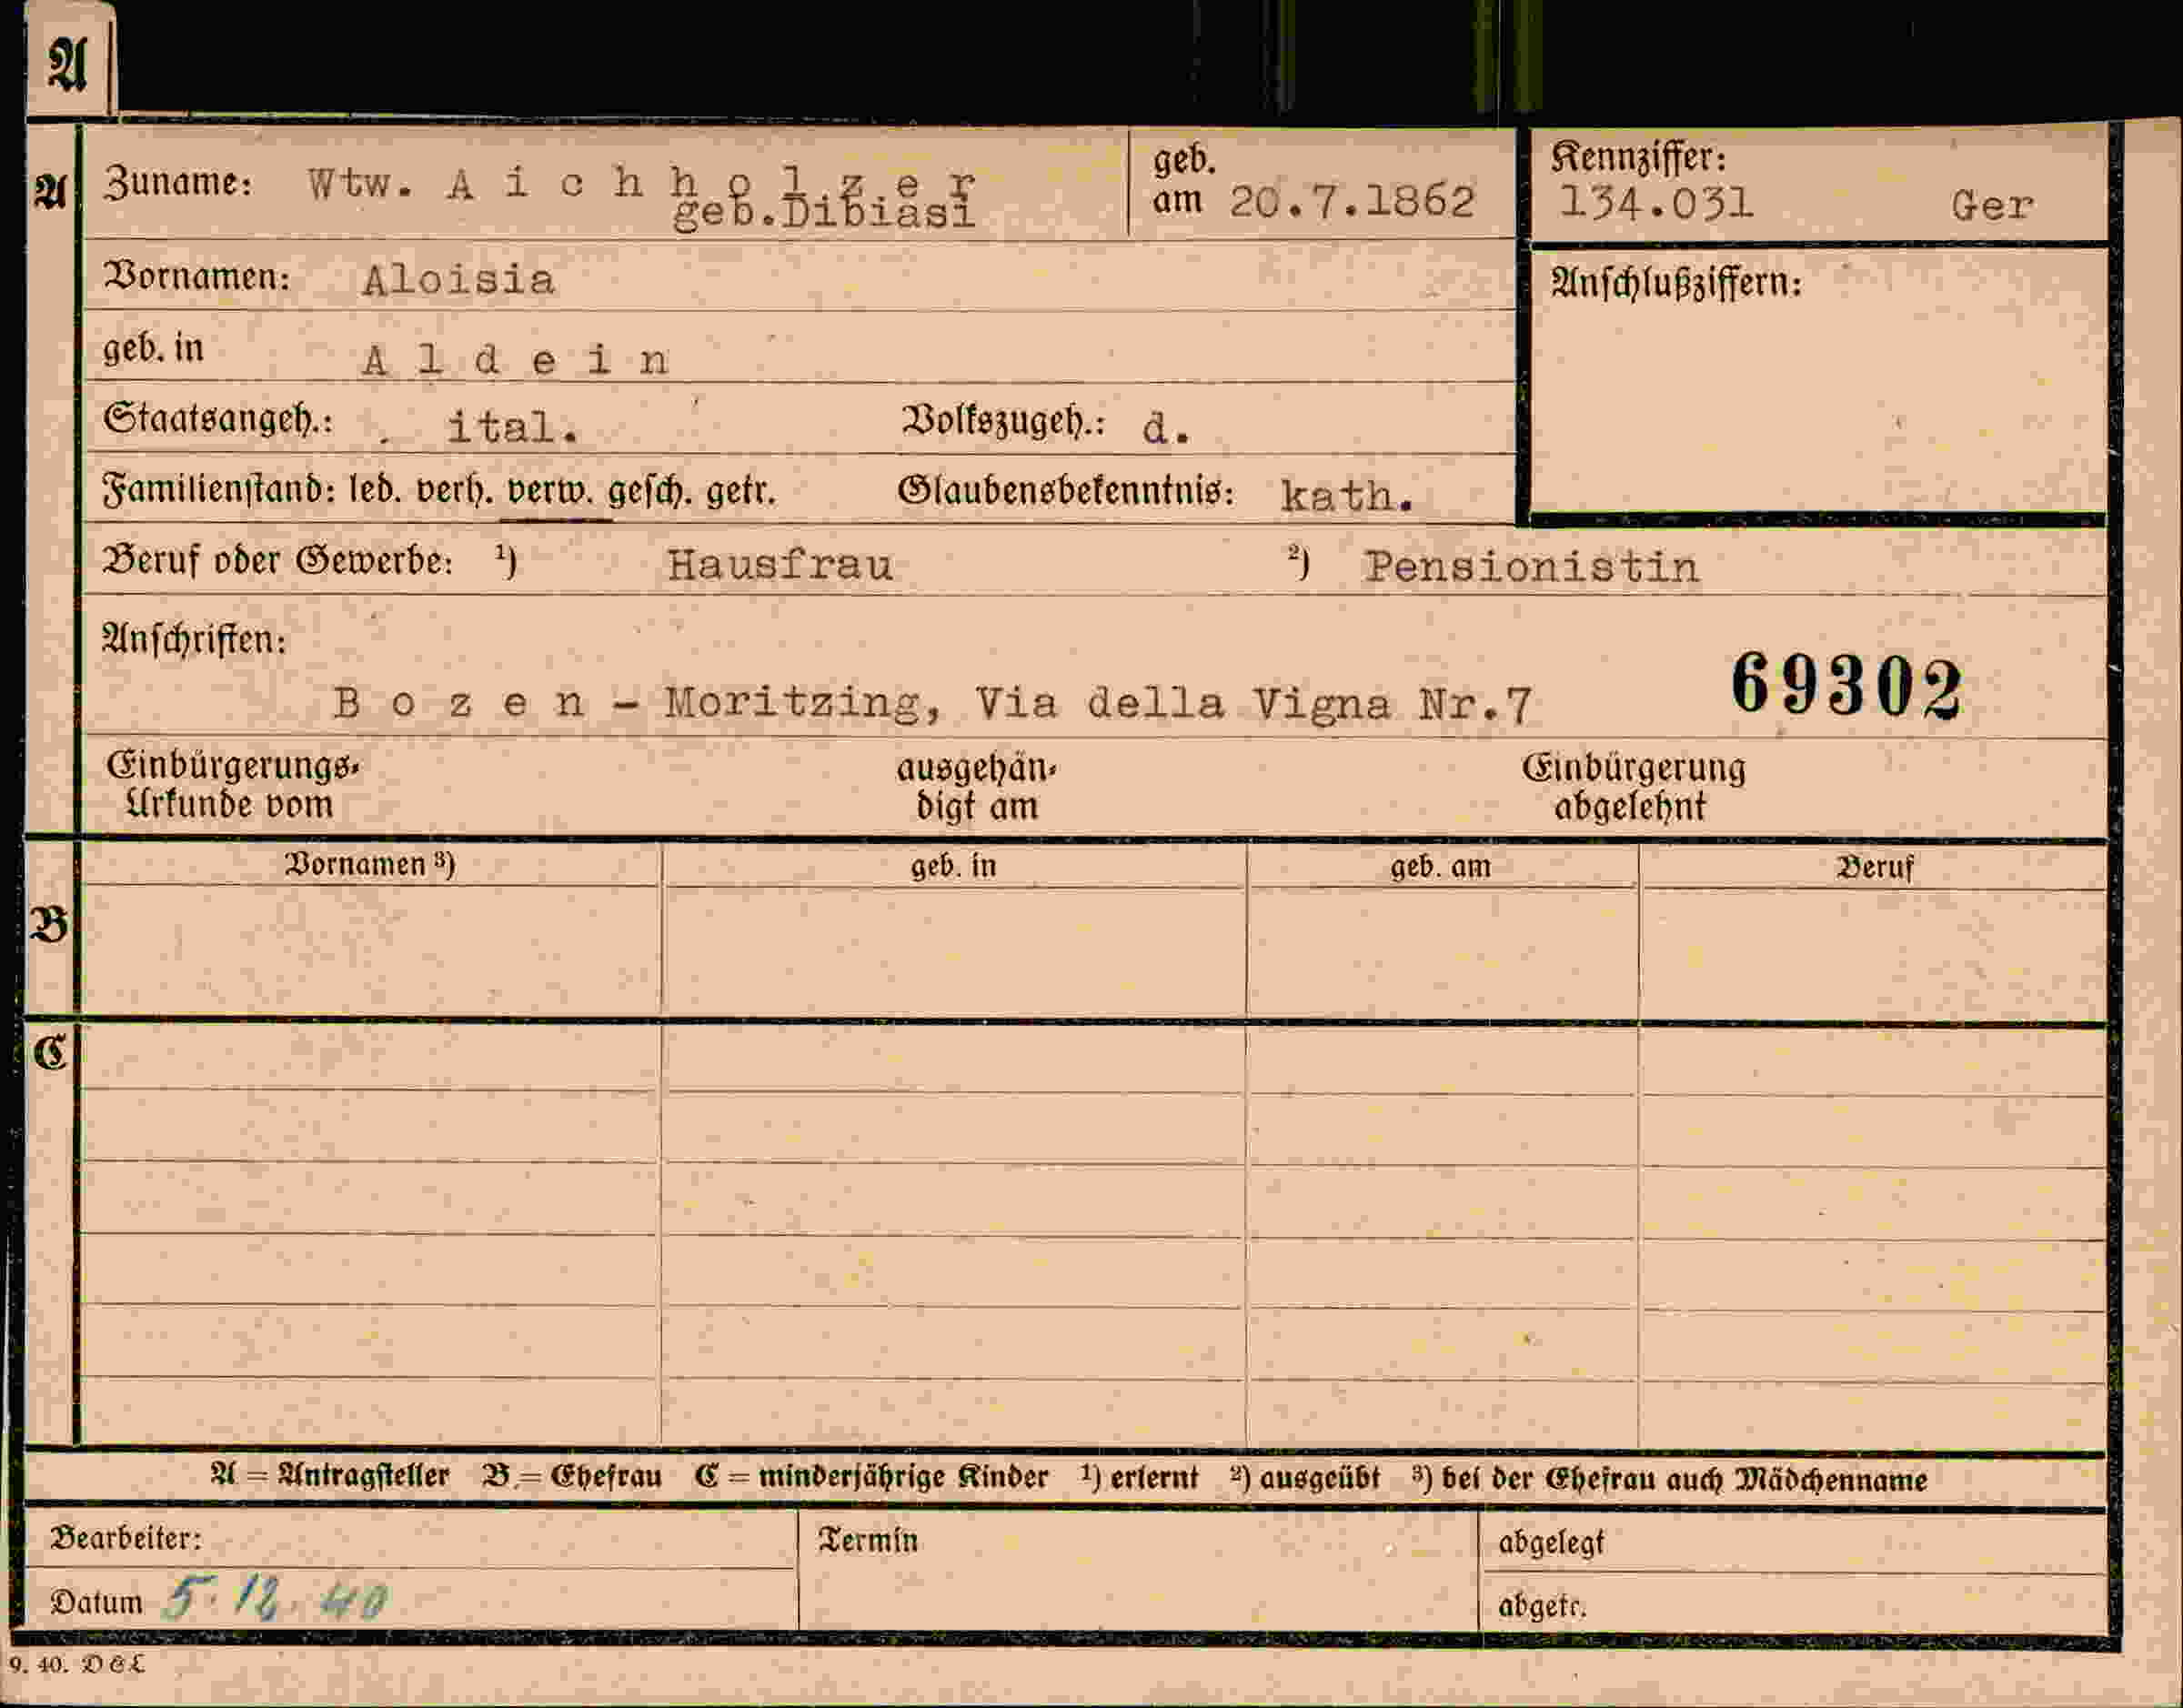 A
A Zuname: Wtw. A i c h h o l z e r geb. am 20.7.1862 Kennziffer: 134.031 Ger
geb.Dibiasi
Vornamen: Aloisia Anschlußziffern:
geb. in A l d e i n
Staatsangeh.: ital. Volkszugeh.: d.
Familienstand: led. verh. verw. gesch. getr. Glaubensbekenntnis: kath.
Beruf oder Gewerbe: ¹) Hausfrau ²) Pensionistin
Anschriften:
B o z e n - Moritzing, Via della Vigna Nr.7 69302
Einbürgerungs- ausgehän- Einbürgerung
Urkunde vom digt am abgelehnt
Vornamen ³) geb. in geb. am Beruf
B
C
A = Antragsteller B = Ehefrau C = minderjährige Kinder ¹) erlernt ²) ausgeübt ³) bei der Ehefrau auch Mädchenname
Bearbeiter: Termin abgelegt
Datum 5.12.40 abgetr.
9. 40. D&L